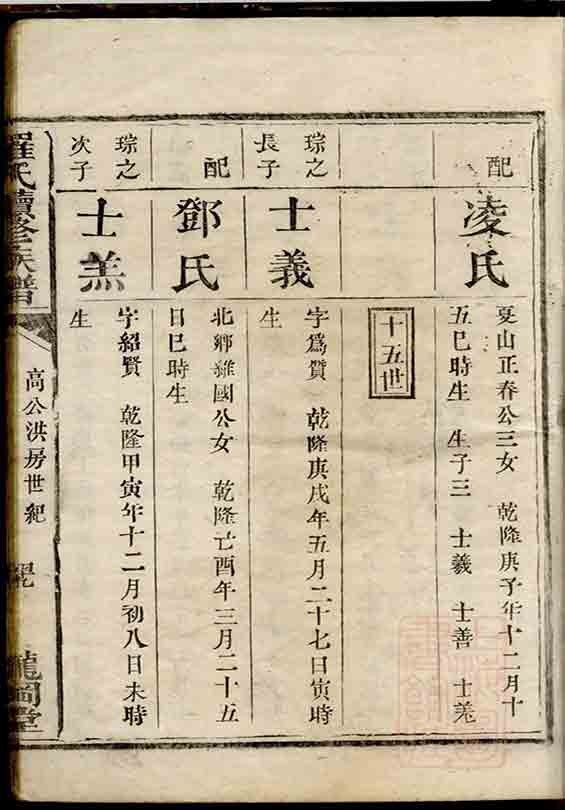 配
凌氏
夏山正春公三女 乾隆庚子年十二月十
五巳時生 生子三 士義 士善 士羗
十五世
琮之
長子
士義
字爲質 乾隆庚戌年五月二十七日寅時
生
配
鄧氏
北鄉維國公女 乾隆己酉年三月二十五
日巳時生
琮之
次子
士羔
字紹賢 乾隆甲寅年十二月初八日未時
生
羅氏續修族譜
高公洪房世紀